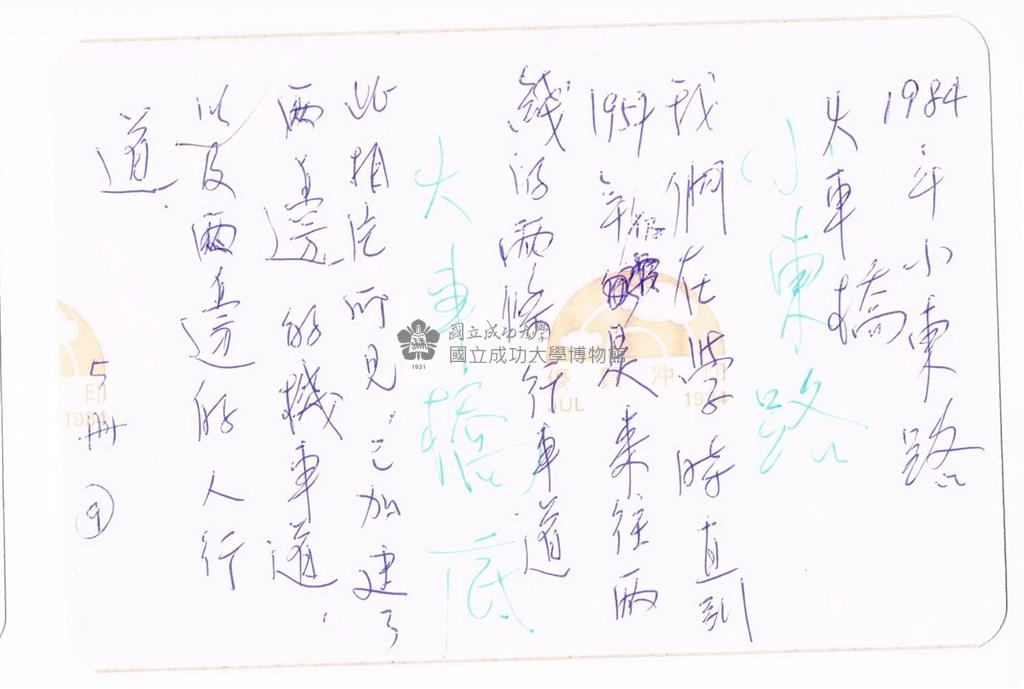 1984年小東路
火車橋
小東路
我們在学時直到
1957年 僅是來往兩
綫的兩條行車道
火車橋底
此相片所見，已加建了
兩邊的機車道，
以及兩邊的人行
道．
5冊 ⑨
國立成功大學
國立成功大學博物館
1931
優質冲印
JUL 1984
印
1984